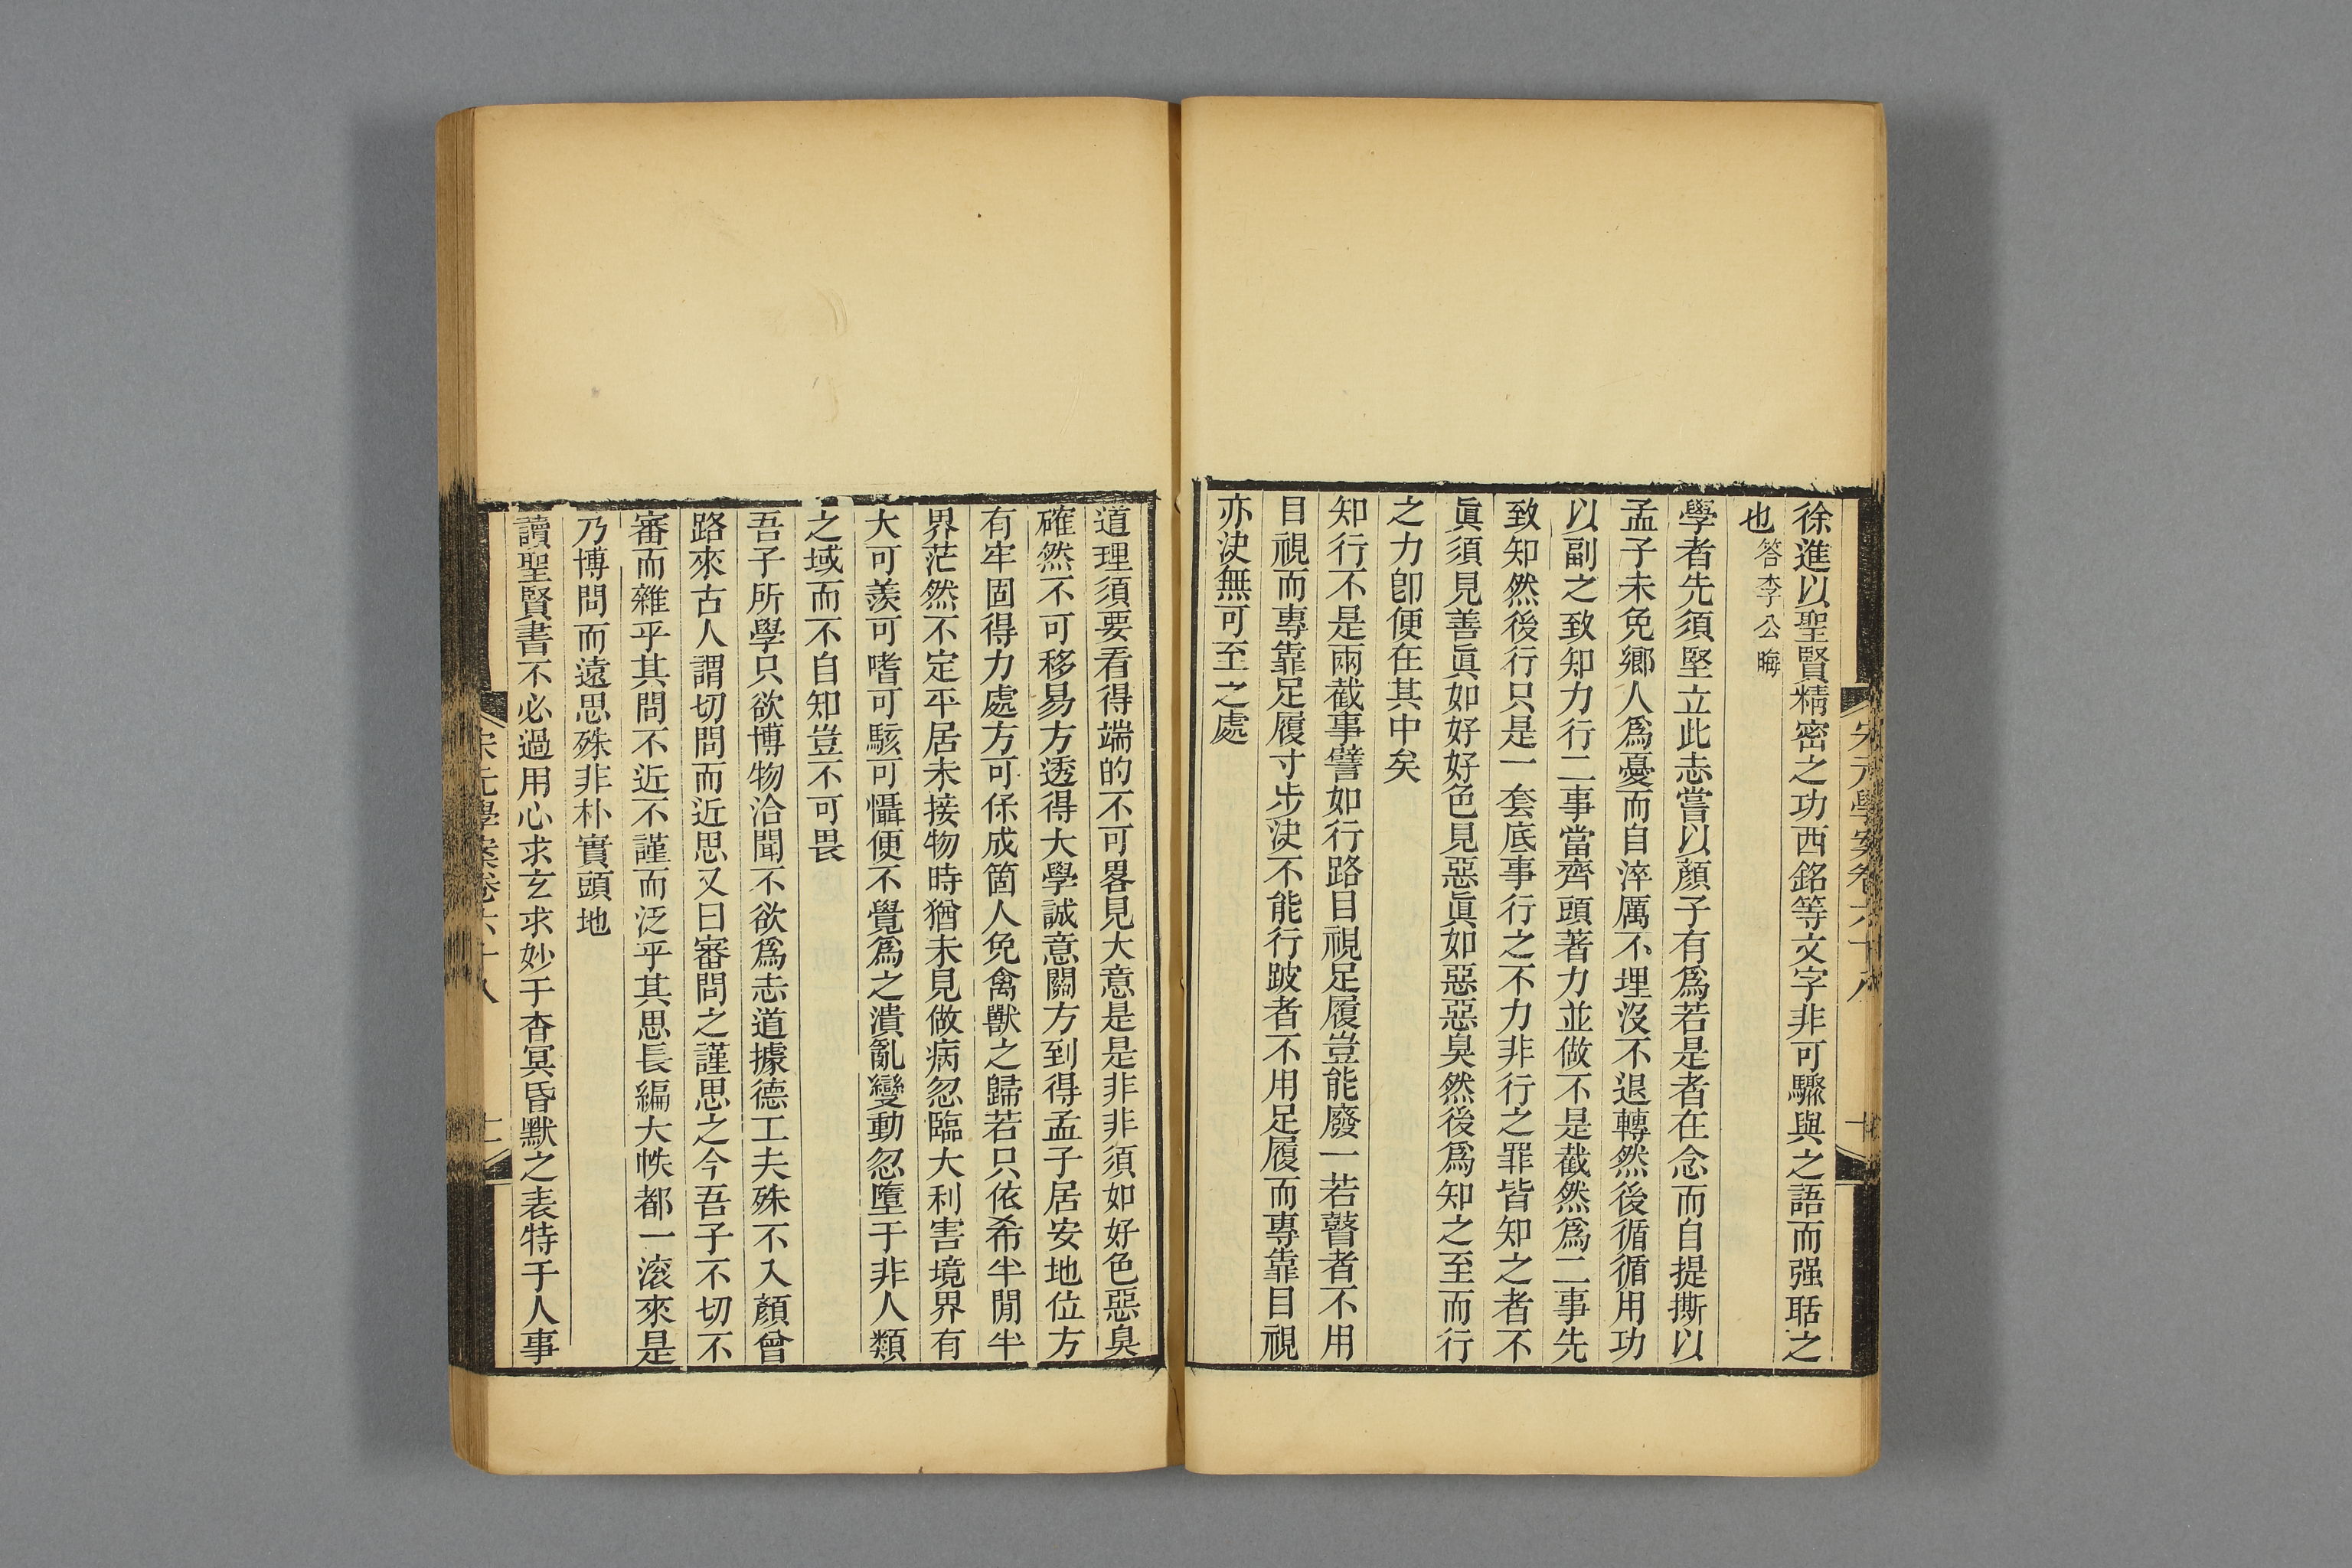 宋元學案卷六十八
徐進以聖賢精密之功西銘等文字非可驟與之語而强聒之
也答李公晦
學者先須堅立此志嘗以顏子有爲若是者在念而自提撕以
孟子未免鄉人爲憂而自淬厲不埋沒不退轉然後循循用功
以副之致知力行二事當齊頭著力並做不是截然爲二事先
致知然後行只是一套底事行之不力非行之罪皆知之者不
眞須見善眞如好好色見惡眞如惡惡臭然後爲知之至而行
之力卽便在其中矣
知行不是兩截事譬如行路目視足履豈能廢一若瞽者不用
目視而專靠足履寸步決不能行跛者不用足履而專靠目視
亦決無可至之處
道理須要看得端的不可畧見大意是是非非須如好色惡臭
確然不可移易方透得大學誠意關方到得孟子居安地位方
有牢固得力處方可保成箇人免禽獸之歸若只依希半閒半
界茫然不定平居未接物時猶未見做病忽臨大利害境界有
大可羨可嗜可駭可懾便不覺爲之潰亂變動忽墮于非人類
之域而不自知豈不可畏
吾子所學只欲博物洽聞不欲爲志道據德工夫殊不入顏曾
路來古人謂切問而近思又曰審問之謹思之今吾子不切不
審而雜乎其問不近不謹而泛乎其思長編大帙都一滚來是
乃博問而遠思殊非朴實頭地
讀聖賢書不必過用心求玄求妙于杳冥昏默之表特于人事
宋元學案卷六十八